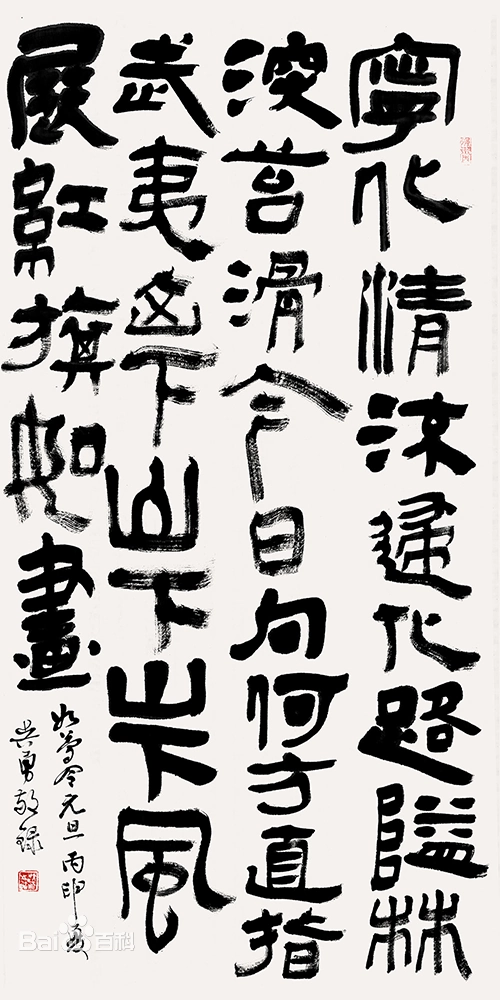 寧化清流歸化路隘林
深苔滑今日向何方直指
武夷山下山下山下風
展紅旗如畫
如夢令元旦丙申夏
勇敬録
Bai百科